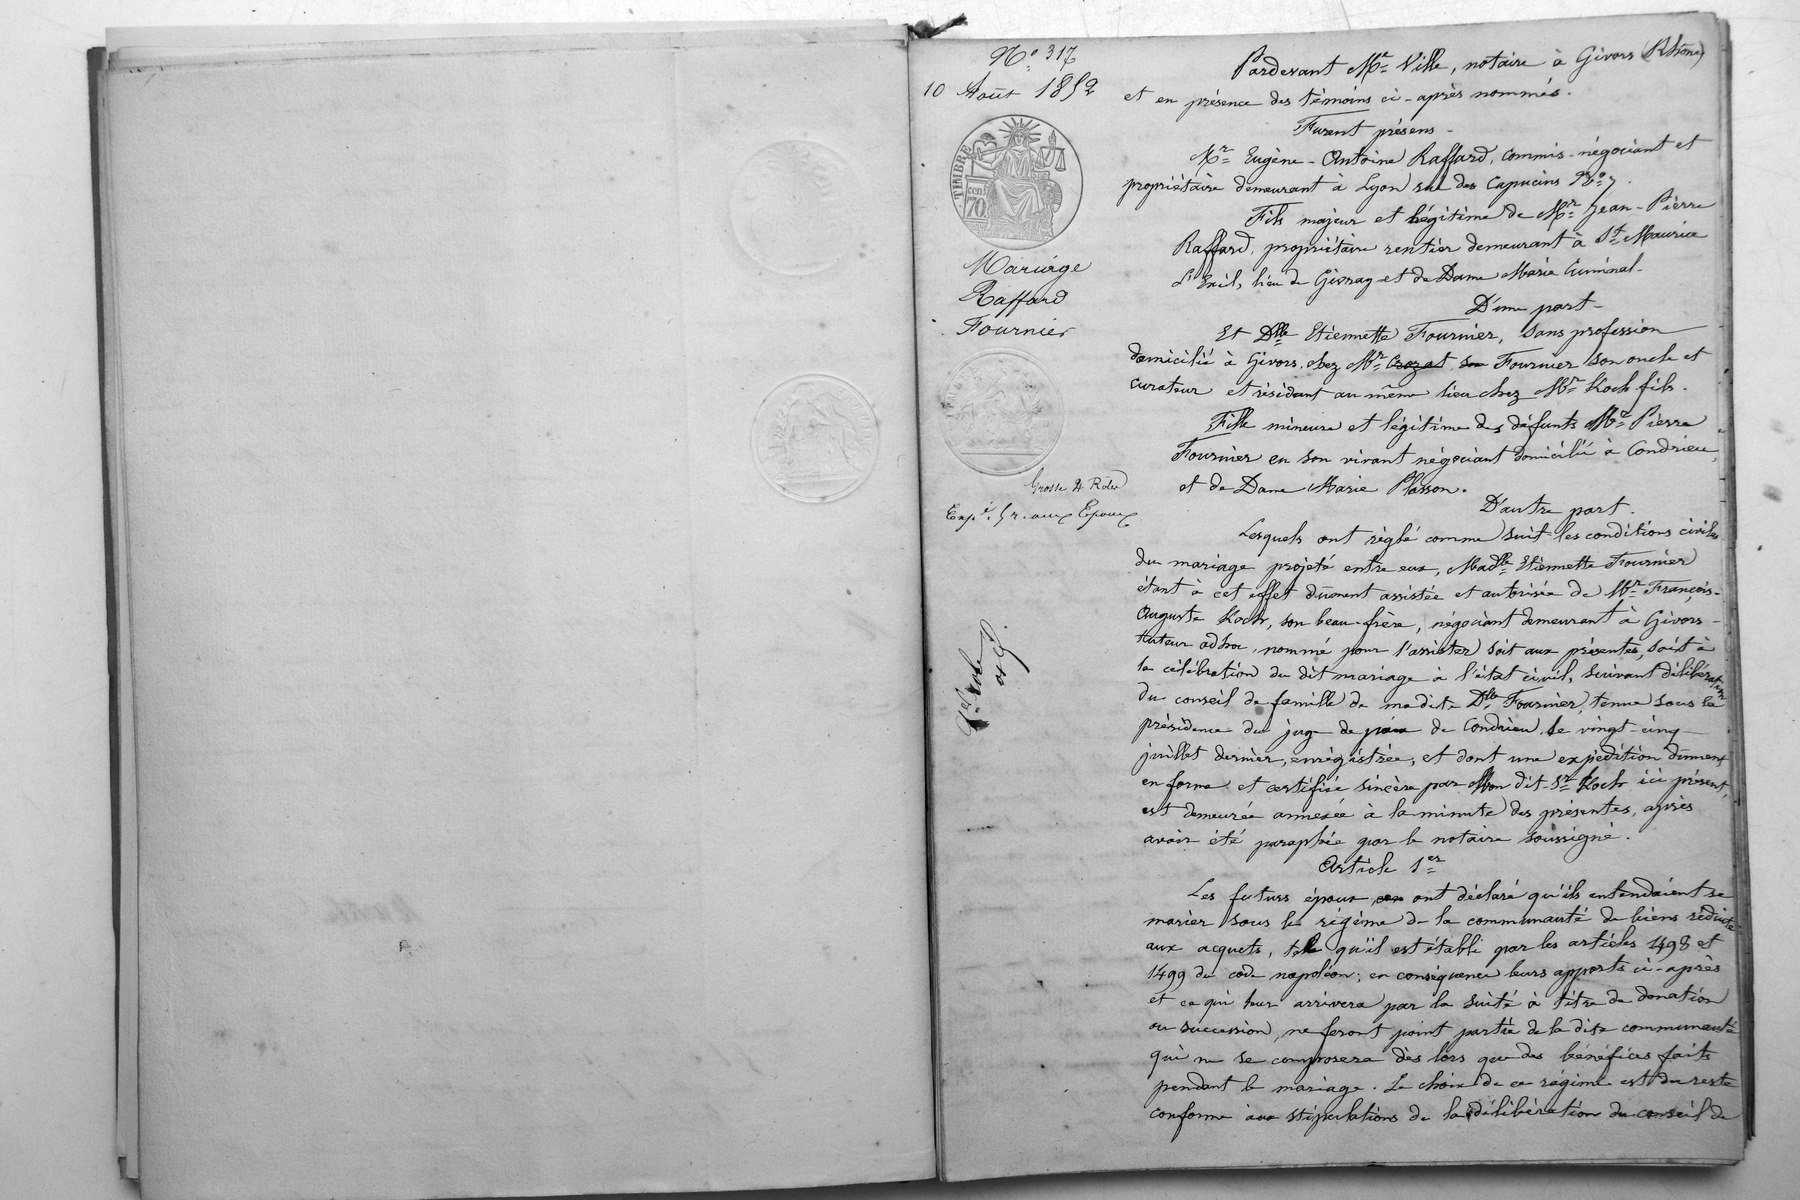 N.º 317
10 Août 1852
TIMBRE
cent
70
Mariage
Raffard
Fournier
Grosse 4 Roles
Exp.é aux Epoux
Pardevant Mtre Ville, notaire à Givors (Rhône)
et en présence des témoins ci-après nommés.
Furent présens -
Mr Eugène-Antoine Raffard, commis-négociant et
propriétaire demeurant à Lyon rue des Capucins No 7.
Fils majeur et légitime de Mr Jean-Pierre
Raffard, propriétaire rentier demeurant à St Maurice
L'Exil, lieu de Givray et de Dame Marie Cuminal -
D'une part -
Et Dlle Etiennette Fournier, sans profession
domicilié à Givors, chez Mr Crozat son Fournier son oncle et
curateur et résidant au même lieu chez Mr Koch fils.
Fille mineure et légitime des défunts Mr Pierre
Fournier en son vivant négociant domicilié à Condrieu,
et de Dame Marie Plasson.
D'autre part.
Lesquels ont réglé comme suit les conditions civiles
du mariage projeté entre eux, Madlle Etiennette Fournier
étant à cet effet dument assistée et autorisée de Mr François-
Auguste Koch, son beau-frère, négociant demeurant à Givors -
tuteur adhoc, nommé pour l'assister soit aux présentes, soit à
la célébration du dit mariage à l'état civil, suivant délibération
du conseil de famille de ma dite Dlle Fournier, tenue sous la
présidence du juge de paix de Condrieu, le vingt-cinq
juillet dernier, enrégistrée, et dont une expédition dument
en forme et certifiée sincère par Mon dit Sr Koch ici présent,
est demeurée annexée à la minute des présentes, après
avoir été paraphée par le notaire soussigné.
Article 1er
Les futurs époux ont déclaré qu'ils entendaient se
marier sous le régime de la communauté de biens réduite
aux acquets, tel qu'il est établi par les articles 1498 et
1499 du code napoléon; en conséquence leurs apports ci-après
et ce qui leur arrivera par la suite à titre de donation
ou succession, ne feront point partie de la dite communauté
qui ne se composera dès lors que des bénéfices faits
pendant le mariage. Le choix de ce régime est du reste
conforme aux stipulations de la délibération du conseil de